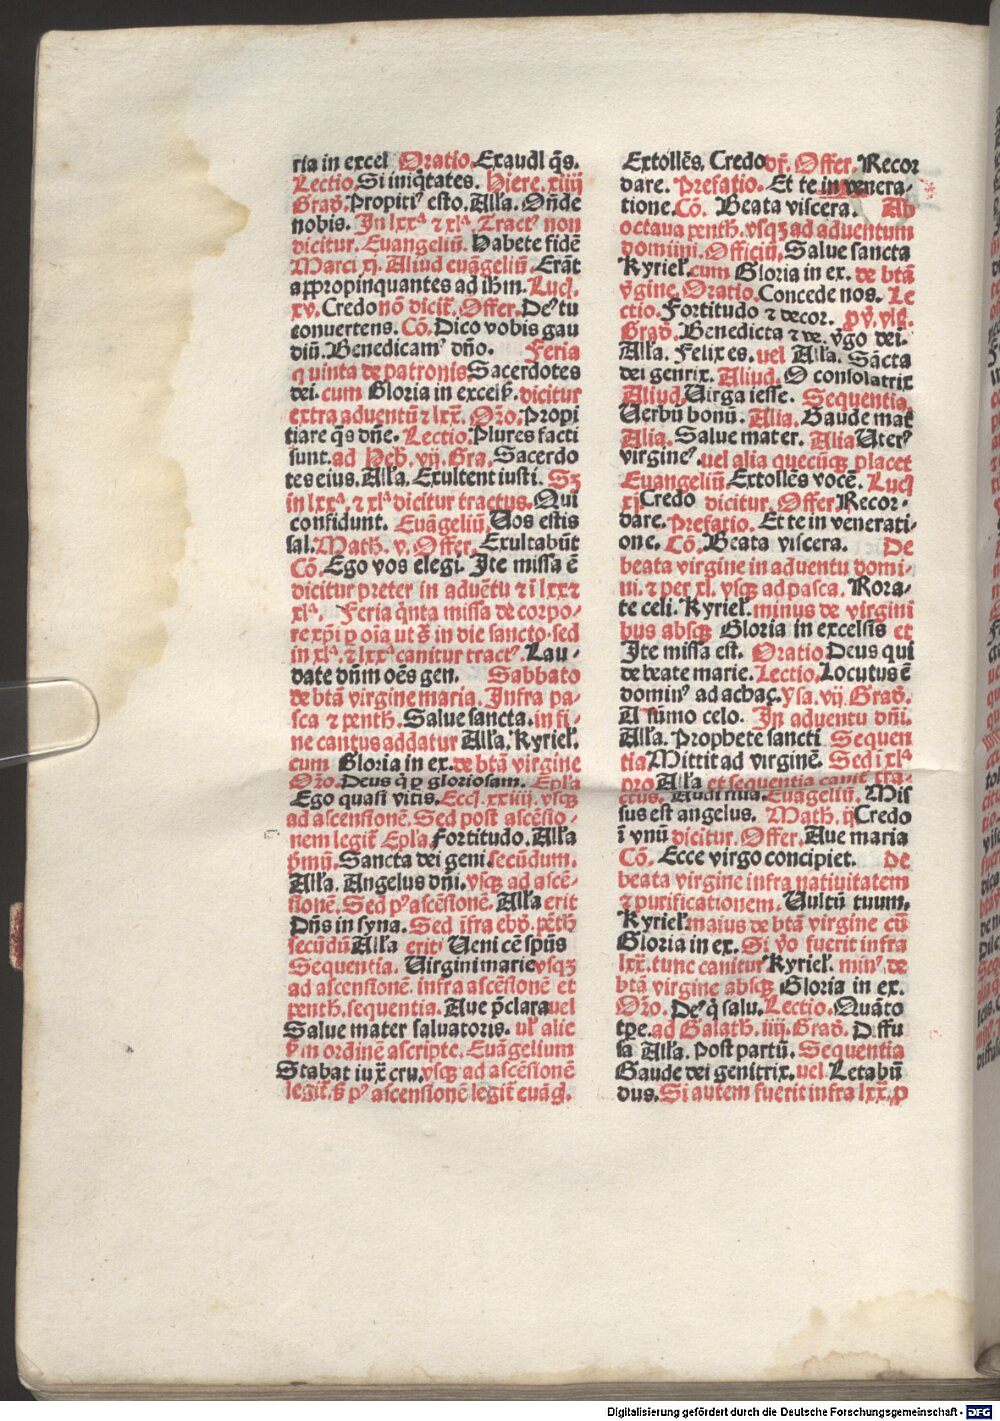 ria in excel Oratio. Exaudi q̄s.
Lectio. Si iniq̄tates. Hiere. xiiij
Grad̄. Propiti⁹ esto. Alľa. Oñde
nobis. In lxxᵃ ⁊ xlᵃ Tract⁹ non
dicitur. Euangeliū. Habete fidē
Marci xj. Aliud euāgeliū. Erāt
appropinquantes ad ihm̄. Luc̄.
xv. Credo nō dicit̄. Offer. De⁹ tu
conuertens. Cō. Dico vobis gau
diū. Benedicam⁹ dño. Feria
quinta de patronis Sacerdotes
dei. cum Gloria in excelß. dicitur
extra aduentū ⁊ lxx̄. Or̄o. Propi
tiare q̄s dñe. Lectio. Plures facti
sunt. ad Heb̄. vij. Gra. Sacerdo
tes eius. Alľa. Exultent iusti. Sꝫ
in lxxᵃ ⁊ xlᵃ dicitur tractus. Qui
confidunt. Euāgeliū. Uos estis
sal. Math̄. v. Offer. Exultabūt
Cō. Ego vos elegi. Ite missa ē
dicitur preter in aduētu ⁊ ī lxx ⁊
xlᵃ. Feria q̄nta missa de corpo⸗
re xp̄i ꝑ oīa ut s̄ in die sancto. sed
in xlᵃ. ⁊ lxxᵃ canitur tract⁹. Lau⸗
date dñm oēs gen. Sabbato
de btā virgine maria. Infra pa⸗
sca ⁊ penth̄. Salue sancta. in fi⸗
ne cantus addatur Alľa. Kyriel̄.
cum Gloria in ex. de btā virgine
Or̄o. Deus q̄ ꝑ gloriosam. Epľa
Ego quasi vitis. Eccl̄. xxiiij. vsqꝫ
ad ascensionē. Sed post ascēsio⸗
nem legit̄ Epľa. Fortitudo. Alľa
p̄mū. Sancta dei geni. secūdum.
Alľa. Angelus dñi. vsqꝫ ad ascē⸗
sionē. Sed p⁹ ascēsionē. Alľa erit
Dñs in syna. Sed īfra ebd̄. pēth̄
secūdū Alľa erit Ueni cē sp̄us
Sequentia. Uirgini marie vsqꝫ
ad ascensionē. infra ascēsionē et
penth̄. sequentia. Aue p̄clara uel
Salue mater saluatoris. ul̄ alie
ꝓm ordinē ascripte. Euāgelium
Stabat iux̄ cru. vsqꝫ ad ascēsionē
legit̄. ꝓ p⁹ ascensionē legit̄ euāḡ.
Extollēs. Credo dr̄. Offer. Recor
dare. Prefatio. Et te in venera⸗
tione. Cō. Beata viscera. Ab
octaua penth̄. vsqꝫ ad aduentum
domini. Officiū. Salue sancta
Kyriel̄. cum Gloria in ex. de btā
v̄gine. Oratio. Concede nos. Le
ctio. Fortitudo ⁊ decor. ꝓv̄. vlt̄.
Grad̄. Benedicta ⁊ ve. v̄go dei.
Alľa. Felix es. uel Alľa. Sācta
dei genrix. Aliud. O consolatrix
Aliud. Uirga iesse. Sequentia
Uerbū bonū. Alia. Gaude mat̄
Alia. Salue mater. Alia Uter⁹
virgine⁹. uel alia quecūqꝫ placet
Euangeliū. Extollēs vocē. Luc̄
xj Credo dicitur. Offer. Recor⸗
dare. Prefatio. Et te in venerati⸗
one. Cō. Beata viscera. De
beata virgine in aduentu domi⸗
ni. ⁊ per xl. vsqꝫ ad pasca. Rora⸗
te celi. Kyriel̄. minus de virgini
bus absqꝫ Gloria in excelsis et
Ite missa est. Oratio Deus qui
de beate marie. Lectio. Locutus ē
domin⁹ ad achaç. ysa. vij. Grad̄.
A sūmo celo. In aduentu dñi.
Alľa. Prophete sancti Sequen
tia Mittit ad virginē. Sed ī xlᵃ
pro Alľa et sequentia canit̄ tra⸗
ctus. Audi filia. Euangeliū. Mis
sus est angelus. Math̄. ij Credo
ī vnū dicitur. Offer. Aue maria
Cō. Ecce virgo concipiet. De
beata virgine infra natiuitatem
⁊ purificationem. Uultū tuum.
Kyriel̄. maius de btā virgine cū
Gloria in ex. Si v̄o fuerit infra
lxx̄. tunc canitur Kyriel̄. min⁹. de
btā virgine absqꝫ Gloria in ex.
Or̄o. De⁹ q̄ salu. Lectio. Quāto
tp̄e. ad Galath̄. iiij. Grad̄. Diffu
sa Alľa. Post partū. Sequentia
Gaude dei genitrix. uel Letabū
dus. Si autem fuerit infra lxx̄. ꝓ
Digitalisierung gefördert durch die Deutsche Forschungsgemeinschaft - DFG